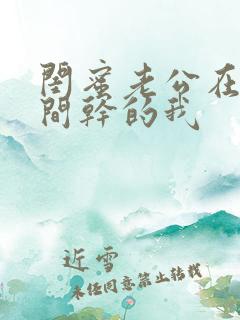 閨蜜老公在
間幹的我
近雪
未经同意禁止转载